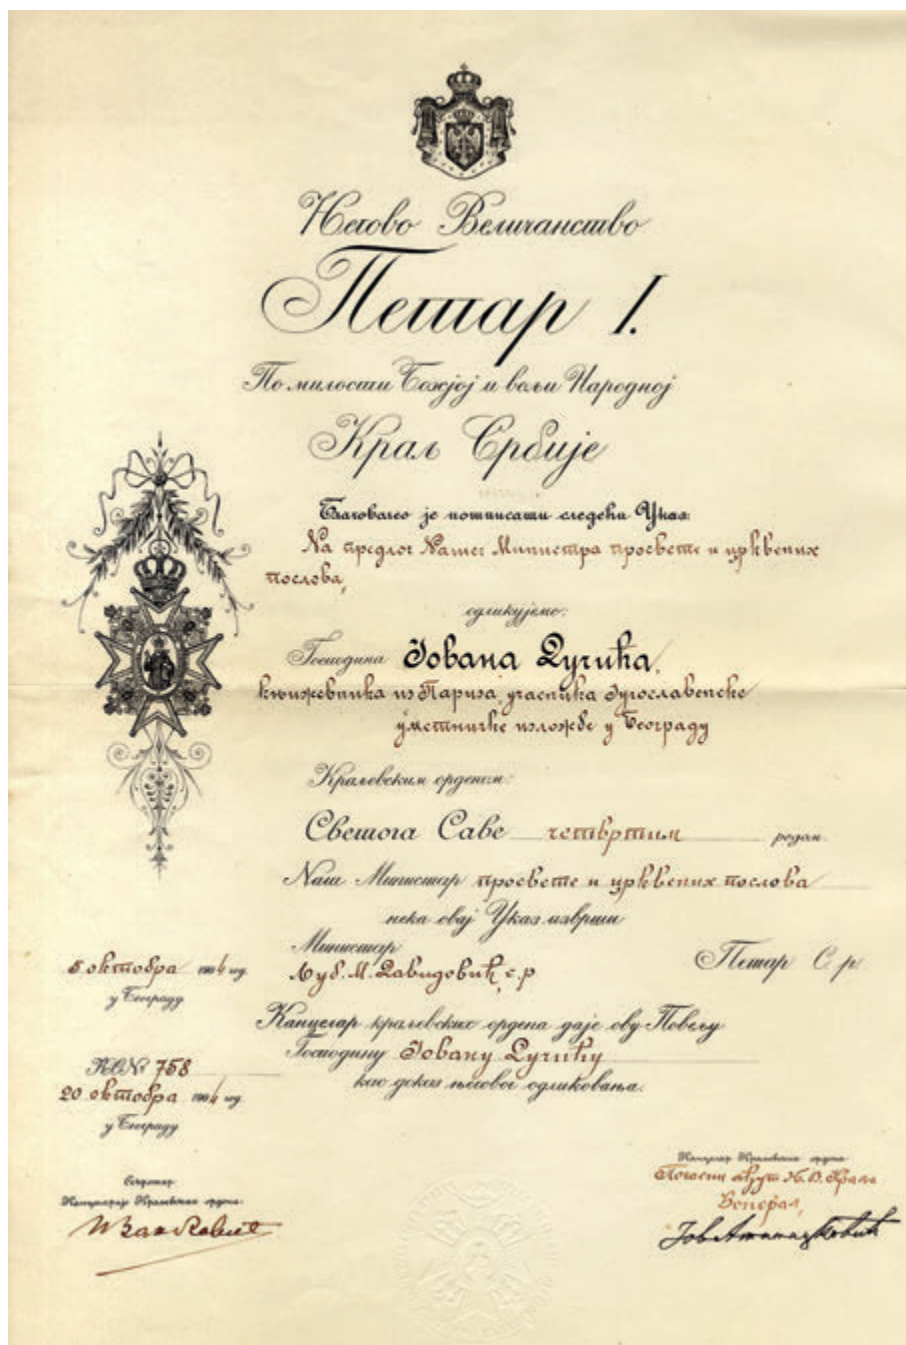 Његово Величанство
Петар I.
По милости Божјој и вољи Народној
Краљ Србије
Благоволео је потписати следећи Указ:
На предлог Нашег Министра просвете и црквених
послова,
одликујемо:
Господина Јована Дучића,
књижевника из Париза, учасника Југословенске
уметничке изложбе у Београду
Краљевским орденом:
Светога Саве четвртим реда.
Наш Министар просвете и црквених послова
нека овај Указ изврши
Министар
Љуб. М. Давидовић, с.р
Петар С. р.
5 октобра 1904 год.
у Београду
Канцелар краљевских ордена даје ову Повељу
Господину Јовану Дучићу
као доказ његовог одликовања.
КО№ 758
20 октобра 1904 год
у Београду
Секретар
Канцеларије Краљевских ордена:
Канцелар Краљевских ордена
Почасни ађут. Њ. В. Краља
Ђенерал,